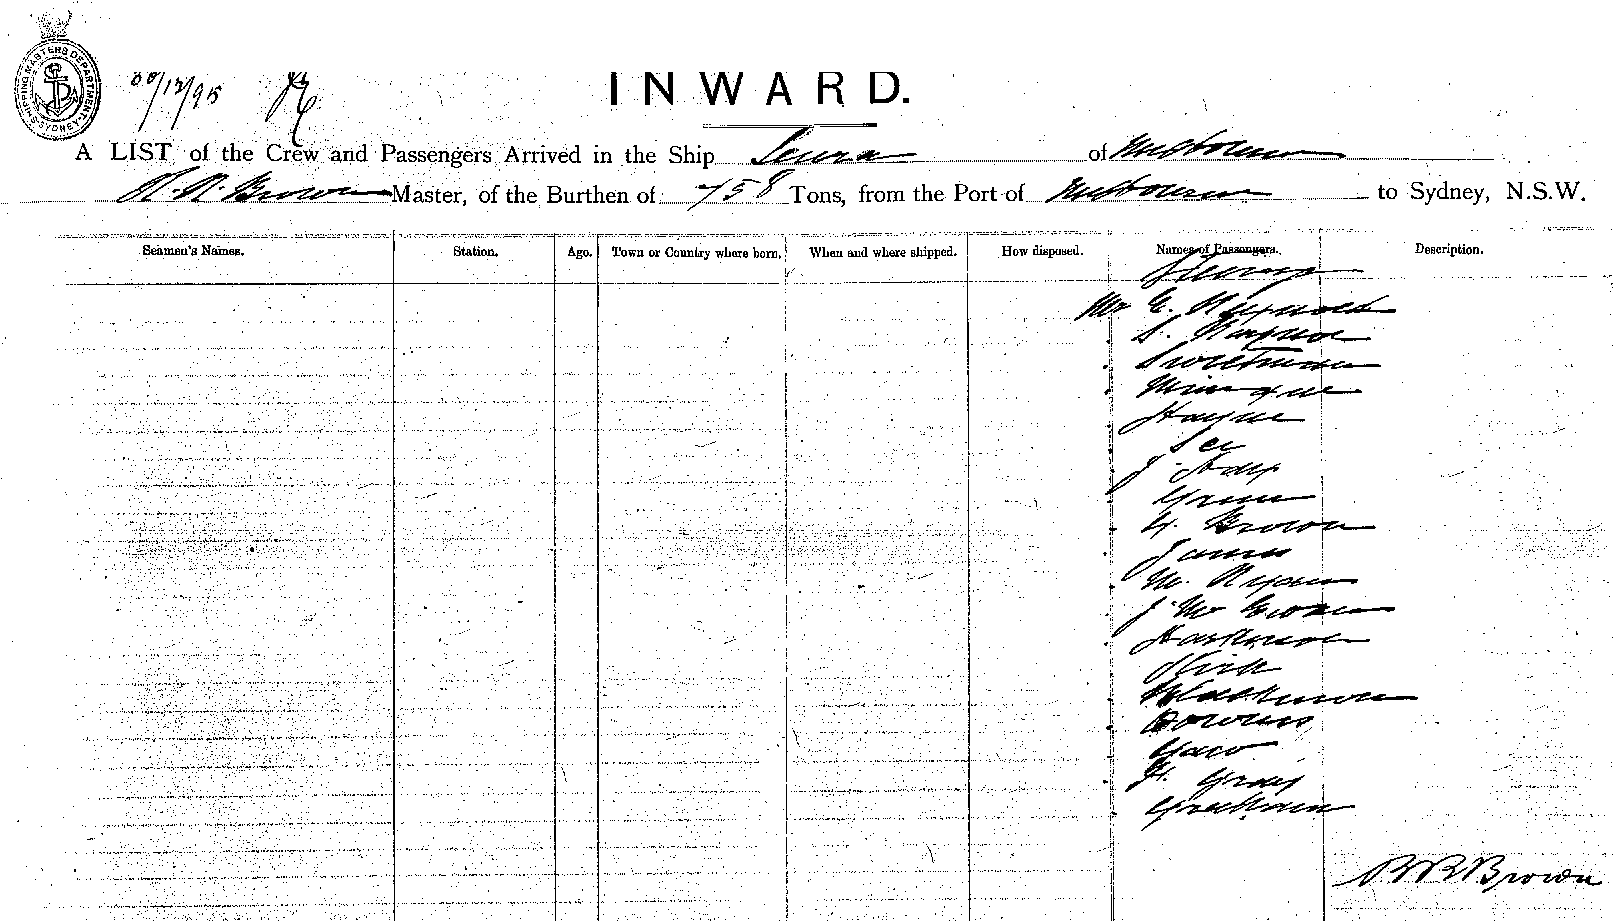 SHIPPING MASTERS DEPARTMENT SYDNEY
30/12/95
INWARD.
A LIST of the Crew and Passengers Arrived in the Ship of Melbourne
R. R. Brown Master, of the Burthen of 758 Tons, from the Port of Melbourne to Sydney, N.S.W.
Seamen's Names. Station. Age. Town or Country where born. When and where shipped. How disposed. Names of Passengers. Description.
Mr E. Reynolds
Sweetman
Hayne
Lee
J.
Green
Brown
James
M. Ryan
J.
Kirk
Blackmore
H. Gray
Graham
R R Brown